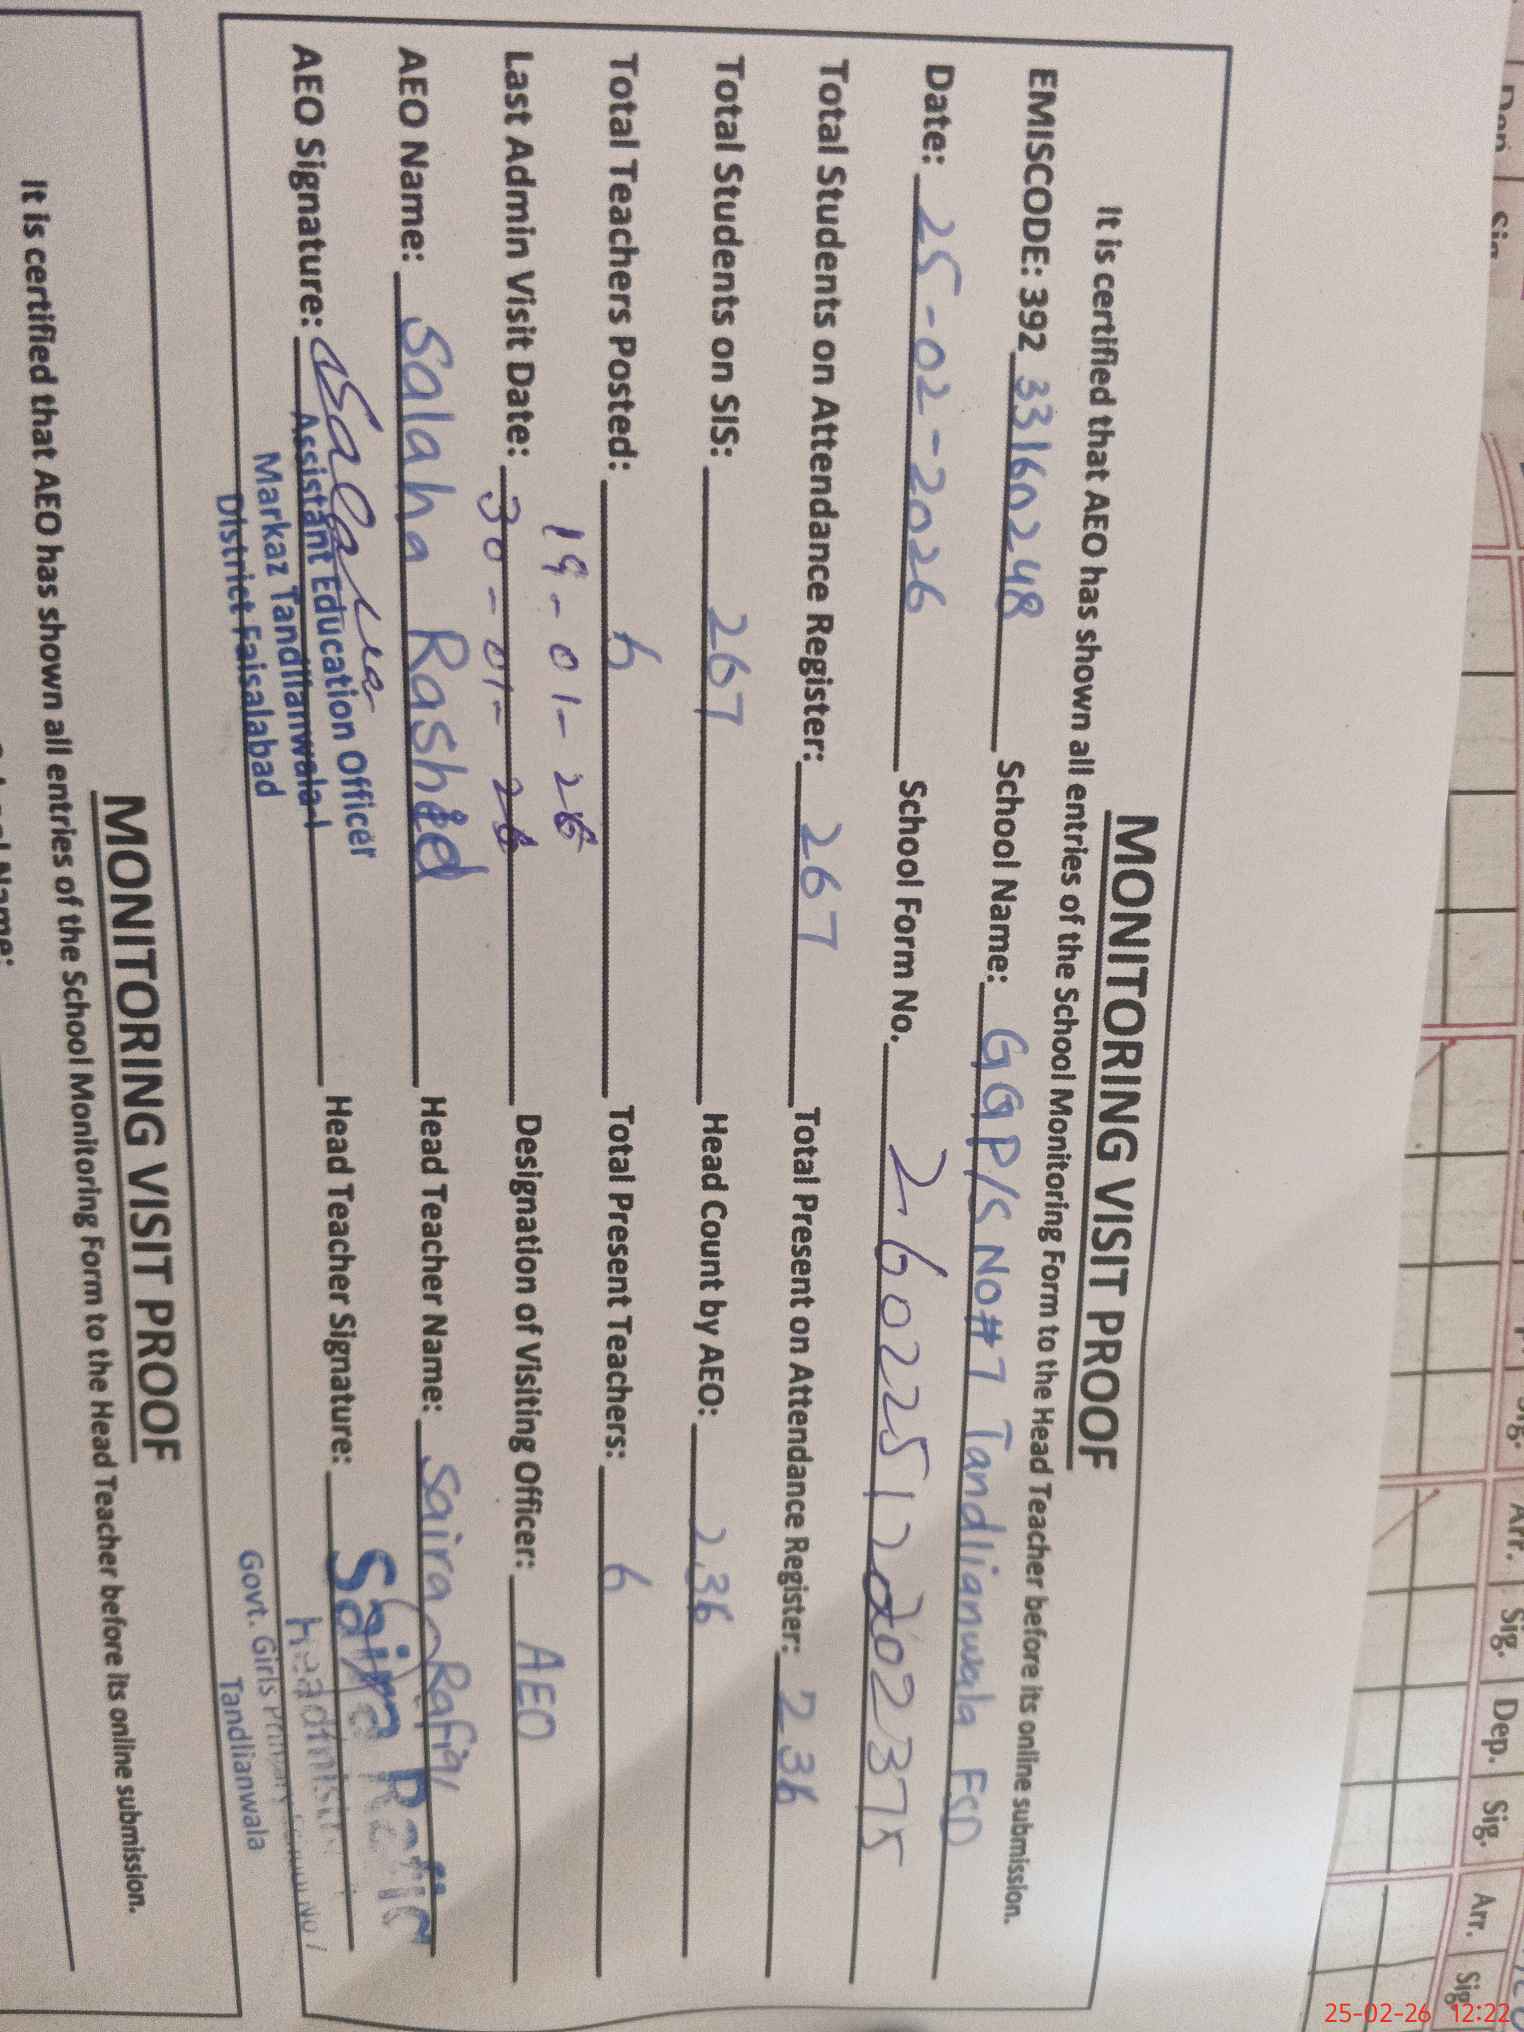 MONITORING VISIT PROOF
It is certified that AEO has shown all entries of the School Monitoring Form to the Head Teacher before its online submission.
EMISCODE: 392 33160248 School Name: GGP/S No#7 Tandlianwala FSD
Date: 25-02-2026 School Form No. 26022512202375
Total Students on Attendance Register: 267 Total Present on Attendance Register: 236
Total Students on SIS: 267 Head Count by AEO: 236
Total Teachers Posted: 6 Total Present Teachers: 6
19-01-26
Last Admin Visit Date: 30-01-26 Designation of Visiting Officer: AEO
AEO Name: Salaha Rashid Head Teacher Name: Saira Rafiq
AEO Signature: Head Teacher Signature: Saira Rafiq
Assistant Education Officer
Markaz Tandlianwala-I
District Faisalabad
Govt. Girls Primary
Tandlianwala
MONITORING VISIT PROOF
It is certified that AEO has shown all entries of the School Monitoring Form to the Head Teacher before its online submission.
Sig.
Arr.
Sig.
Dep.
Sig.
Arr.
Sig
25-02-26 12:22